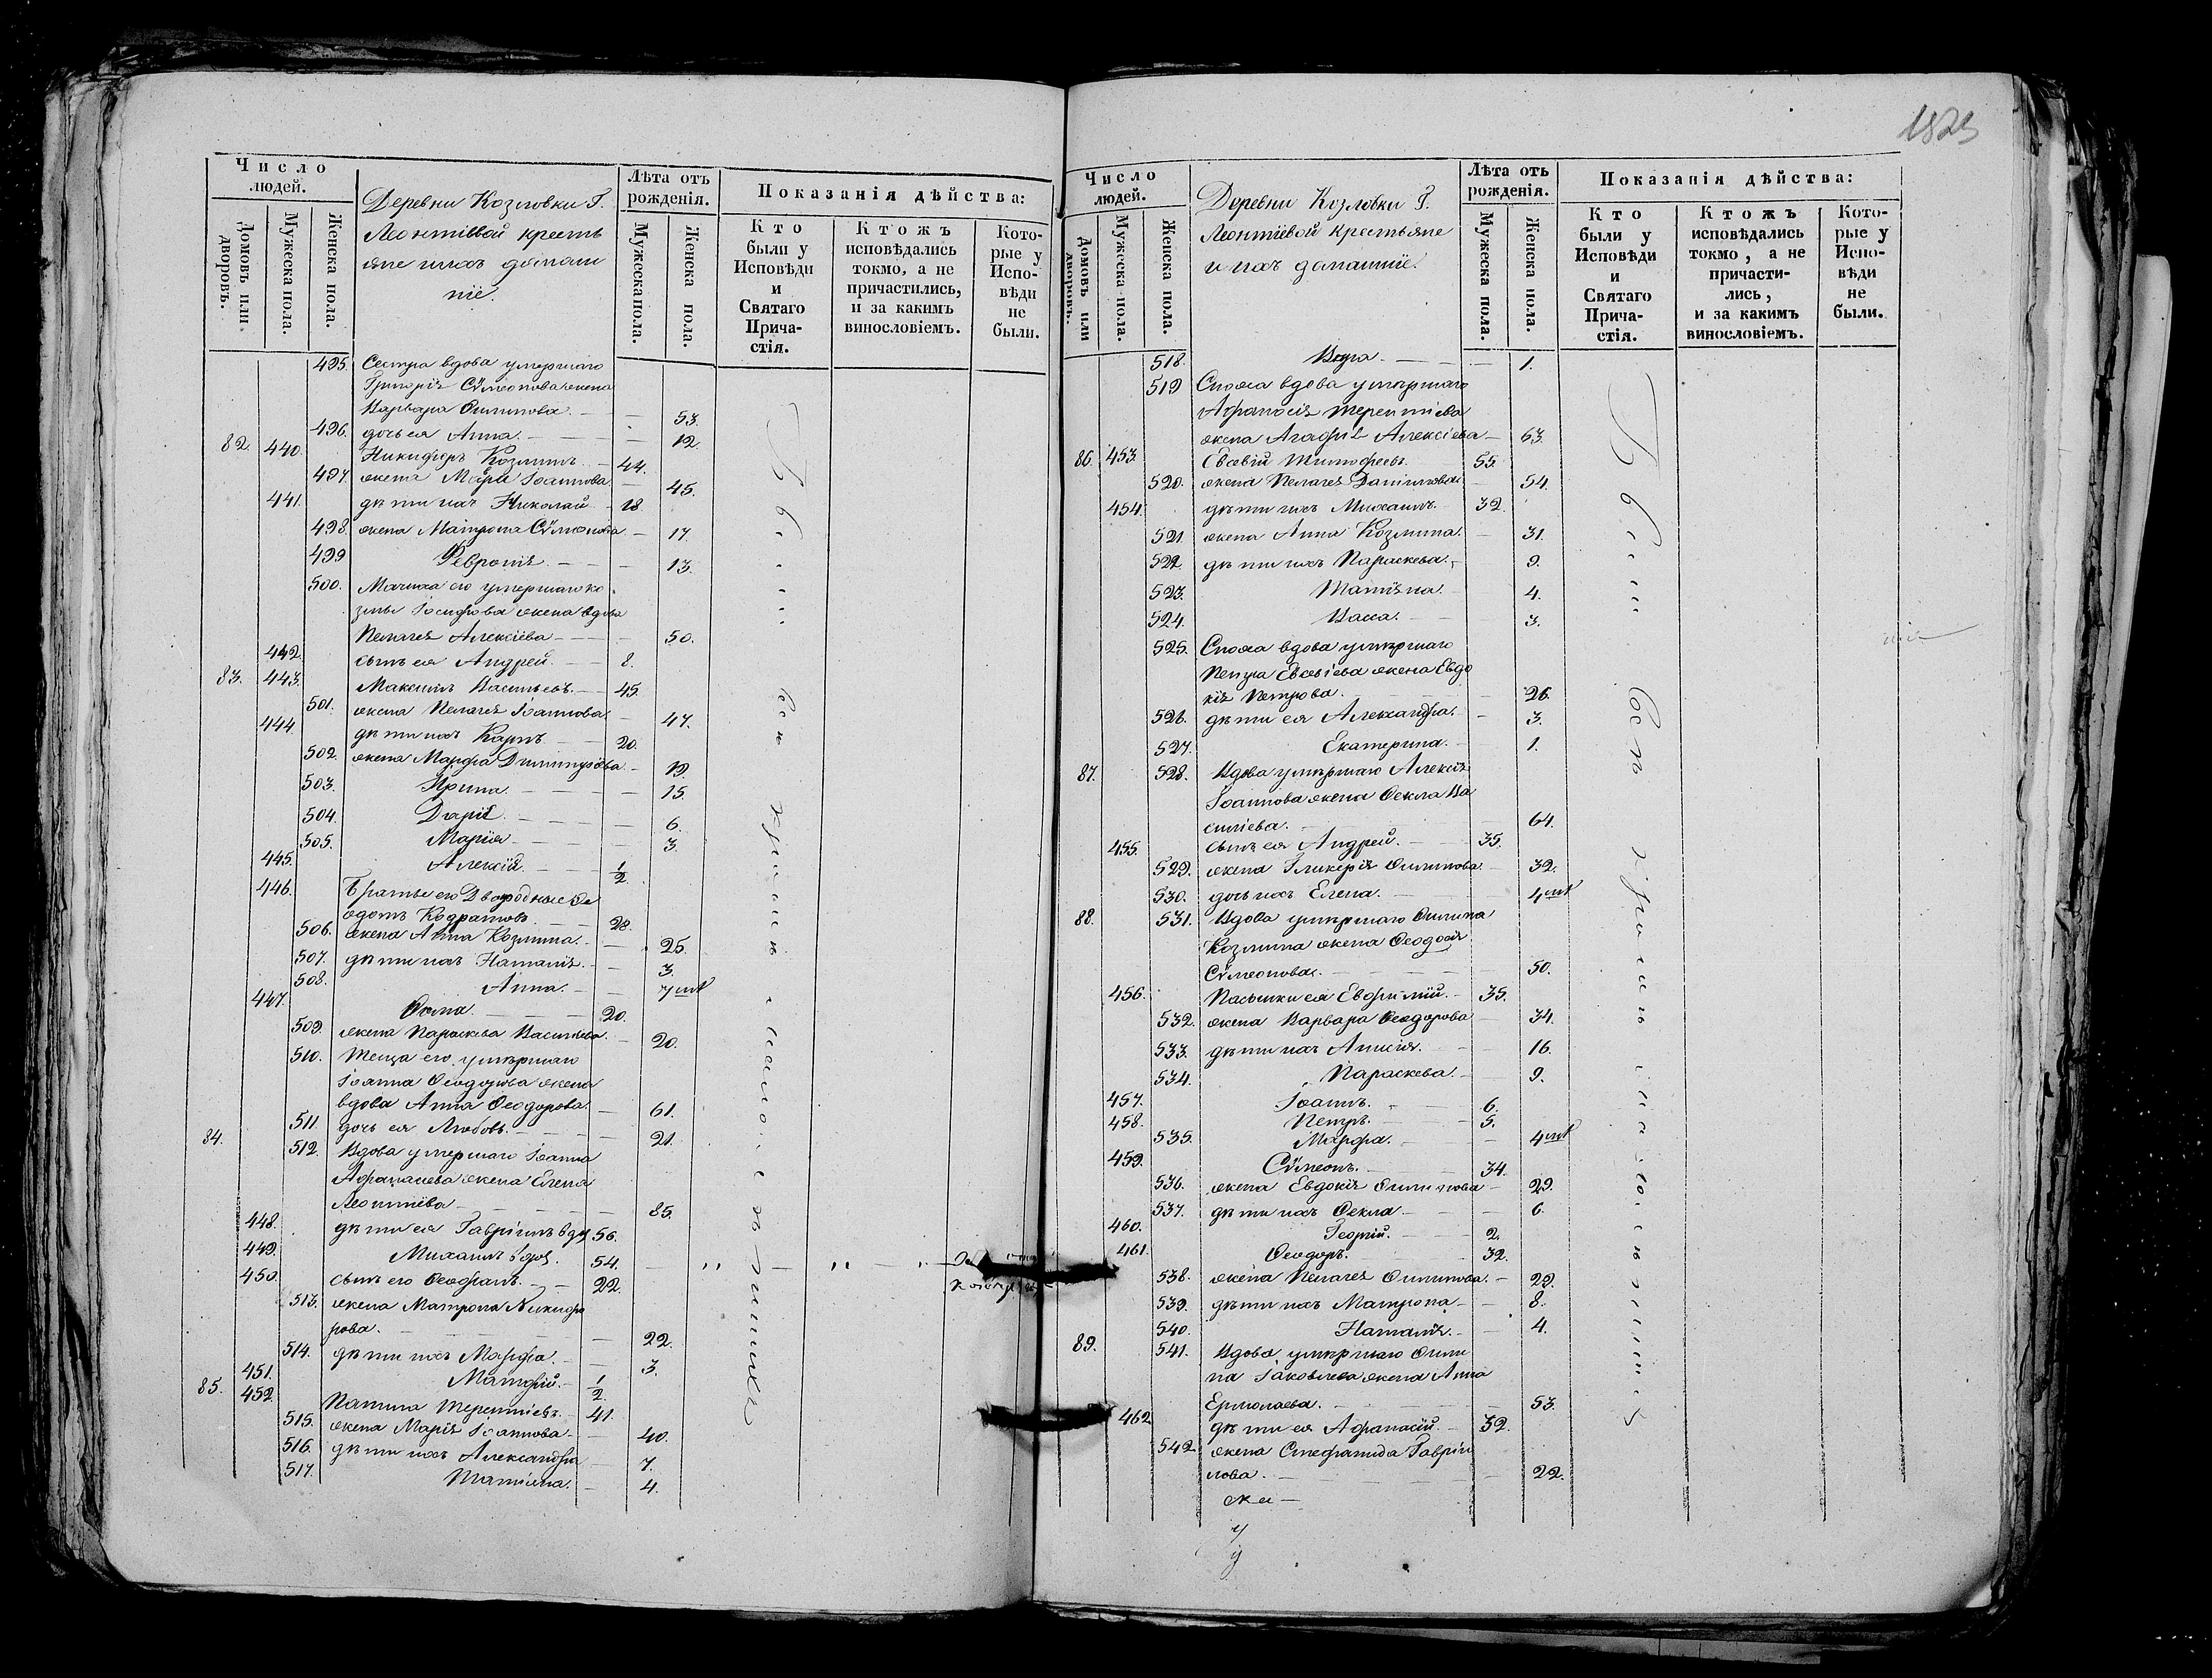 1829
Число людей.
Домовъ или дворовъ.
Мужеска пола.
Женска пола.
Деревни Козловки Г.
Леонтіевой крестья
яне и ихъ домаш
ніе.
Лѣта отъ рожденія.
Мужеска пола.
Женска пола.
Показанія дѣйства:
Кто были у Исповѣди и Святаго Причастія.
Ктожъ исповѣдались токмо, а не причастились, и за какимъ винословіемъ.
Которые у Исповѣди не были.
495. Сестра вдова умершаго
Григорія Сѵмеонова жена
Варвара Филипова. 53.
496. дочь ея Анна. 12.
82. 440. Никифоръ Козминъ. 44.
497. жена Марія Іоаннова. 45.
441. дѣти ихъ Николай 18.
498. жена Матрона Сѵмеонова 17.
499 Февронія. 13.
500. Мачиха его умершаго Ко
змы Іосифова жена вдова
Пелагея Алексіева 50.
442. сынъ ея Андрей. 8.
83. 443. Максимъ Васильевъ. 45.
501. жена Пелагея Іоаннова. 47.
444. дѣти ихъ Карпъ 20.
502. жена Марфа Димитріева 19.
503. Ирина. 15.
504. Дарія. 6.
505. Марія 3.
445. Алексій. 1/2.
446. Братья его Двоюродные Ѳе
одотъ Кодратовъ 28.
506. жена Анна Козмина. 25.
507. дѣти ихъ Наталія. 3.
508. Анна. 7 мѣ
447. Ѳома. 20.
509. жена Параскева Васильева. 20.
510. Теща его умершаго
Іоанна Ѳеодорова жена
вдова Анна Ѳеодорова. 61.
511. дочь ея Любовь. 21.
84. 512. Вдова умершаго Іоанна
Афанасева жена Елена
Леонтіева 85.
448. дѣти ея Гавріилъ вдов 56.
449. Михаилъ 54.
450. сынъ его Ѳеофанъ. 22.
513. жена Матрона Никифо
рова. 22.
514. дѣти ихъ Марфа. 3.
451. Матфій. 1/2.
85. 452. Патапа Терентіевъ. 41.
515. жена Марія Іоаннова 40.
516. дѣти ихъ Александра 7.
517. Татіяна. 4.
Число людей.
Домовъ или дворовъ.
Мужеска пола.
Женска пола.
Деревни Козловки Г.
Леонтіевой крестьяне
и ихъ домашніе.
Лѣта отъ рожденія.
Мужеска пола.
Женска пола.
Показанія дѣйства:
Кто были у Исповѣди и Святаго Причастія.
Ктожъ исповѣдались токмо, а не причастились, и за какимъ винословіемъ.
Которые у Исповѣди не были.
518. Вѣра. 1.
519 Сноха вдова умершаго
Афанасія Терентіева
жена Агафія Алексіева 63.
86. 453. Евсевій Тимофеевъ. 55.
520. жена Пелагея Даниловой 54.
454. дѣти ихъ Михаилъ. 32.
521 жена Анна Козмина. 31.
522. дѣти ихъ Параскева. 9.
523. Татіяна. 4.
524. Васса. 3.
525. Сноха вдова умершаго
Петра Евсевіева жена Евдо
кія Петрова. 26.
526. дѣти ея Александра. 3.
527. Екатерина. 1.
87. 528. Вдова умершаго Алексія
Іоаннова жена Ѳекла Ва
силіева. 64.
455. сынъ ея Андрей. 35.
529. жена Гликерія Филипова 32.
530. дочь ихъ Елена. 4 мѣ
88. 531. Вдова умершаго Филипа
Козмина жена Ѳеодосія
Сѵмеонова. 50.
456. Пасынки ея Евфимій. 35.
532. жена Варвара Ѳеодорова 34.
533. дѣти ихъ Анисія. 16.
534. Параскева. 9.
457. Іоаннъ. 6.
458. Петръ. 5.
535. Марфа. 4 мѣ
459. Сѵмеонъ. 34.
536. жена Евдокія Филипова 29.
537. дѣти ихъ Ѳекла 6.
460. Георгій. 2.
461. Ѳеодоръ. 32.
538. жена Пелагея Филипова. 29.
539. дѣти ихъ Матрона 8.
540. Наталія. 4.
89. 541. Вдова умершаго Фили
па Іаковлева жена Анна
Ермолаева. 53.
462. дѣти ея Афанасій. 32.
542. жена Стефанида Гаврі
лова. 22.